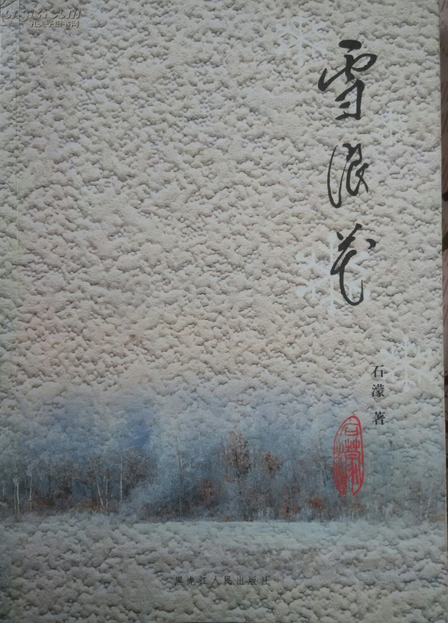 雪浪花
石濛 著
石濛
黑龙江人民出版社